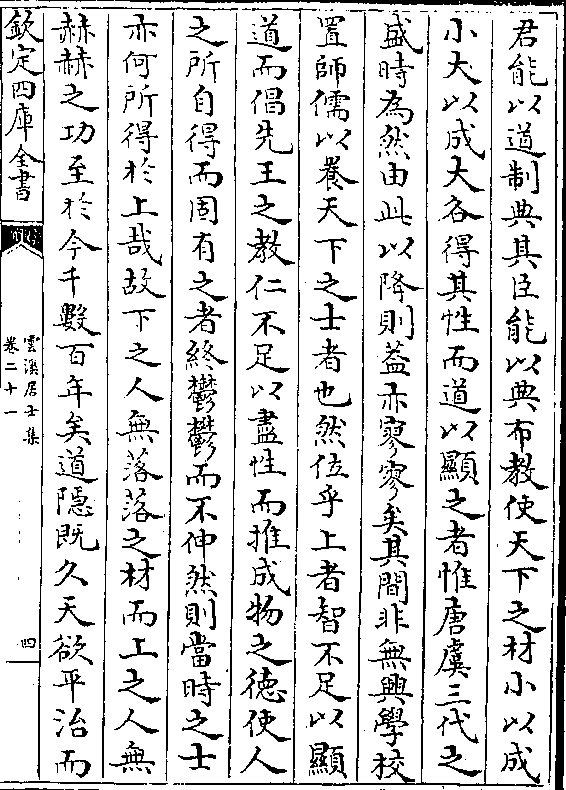 君能以道制典其臣能以典布教使天下之材小以成
小大以成大各得其性而道以顯之者惟唐虞三代之
盛時為然由此以降則葢亦寥寥矣其間非無興學校
置師儒以養天下之士者也然位乎上者智不足以顯
道而倡先王之教仁不足以盡性而推成物之德使人
之所自得而固有之者終鬱鬱而不伸然則當時之士
亦何所得於上哉故下之人無落落之材而上之人無
赫赫之功至於今千數百年矣道隱既久天欲平治而
欽定四庫全書
雲溪居士集
卷二十一
四